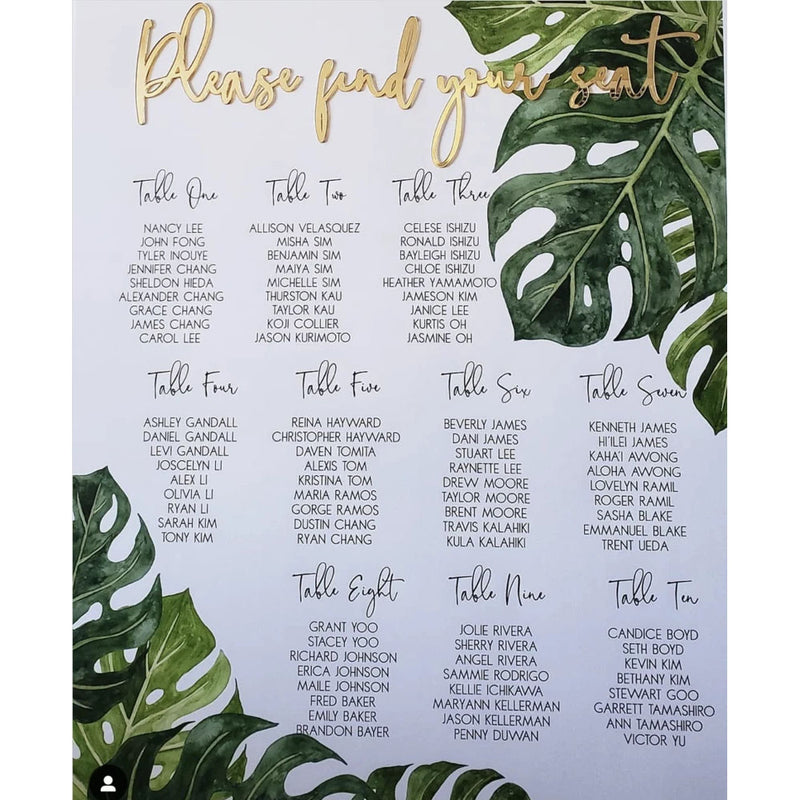 Please find your seat
Table One
NANCY LEE
JOHN FONG
TYLER INOUYE
JENNIFER CHANG
SHELDON HIEDA
ALEXANDER CHANG
GRACE CHANG
JAMES CHANG
CAROL LEE
Table Two
ALLISON VELASQUEZ
MISHA SIM
BENJAMIN SIM
MAIYA SIM
MICHELLE SIM
THURSTON KAU
TAYLOR KAU
KOJI COLLIER
JASON KURIMOTO
Table Three
CELESE ISHIZU
RONALD ISHIZU
BAYLEIGH ISHIZU
CHLOE ISHIZU
HEATHER YAMAMOTO
JAMESON KIM
JANICE LEE
KURTIS OH
JASMINE OH
Table Four
ASHLEY GANDALL
DANIEL GANDALL
LEVI GANDALL
JOSCELYN LI
ALEX LI
OLIVIA LI
RYAN LI
SARAH KIM
TONY KIM
Table Five
REINA HAYWARD
CHRISTOPHER HAYWARD
DAVEN TOMITA
ALEXIS TOM
KRISTINA TOM
MARIA RAMOS
GORGE RAMOS
DUSTIN CHANG
RYAN CHANG
Table Six
BEVERLY JAMES
DANI JAMES
STUART LEE
RAYNETTE LEE
DREW MOORE
TAYLOR MOORE
BRENT MOORE
TRAVIS KALAHIKI
KULA KALAHIKI
Table Seven
KENNETH JAMES
HI'ILEI JAMES
KAHA'I AWONG
ALOHA AWONG
LOVELYN RAMIL
ROGER RAMIL
SASHA BLAKE
EMMANUEL BLAKE
TRENT UEDA
Table Eight
GRANT YOO
STACEY YOO
RICHARD JOHNSON
ERICA JOHNSON
MAILE JOHNSON
FRED BAKER
EMILY BAKER
BRANDON BAYER
Table Nine
JOLIE RIVERA
SHERRY RIVERA
ANGEL RIVERA
SAMMIE RODRIGO
KELLIE ICHIKAWA
MARYANN KELLERMAN
JASON KELLERMAN
PENNY DUWAN
Table Ten
CANDICE BOYD
SETH BOYD
KEVIN KIM
BETHANY KIM
STEWART GOO
GARRETT TAMASHIRO
ANN TAMASHIRO
VICTOR YU